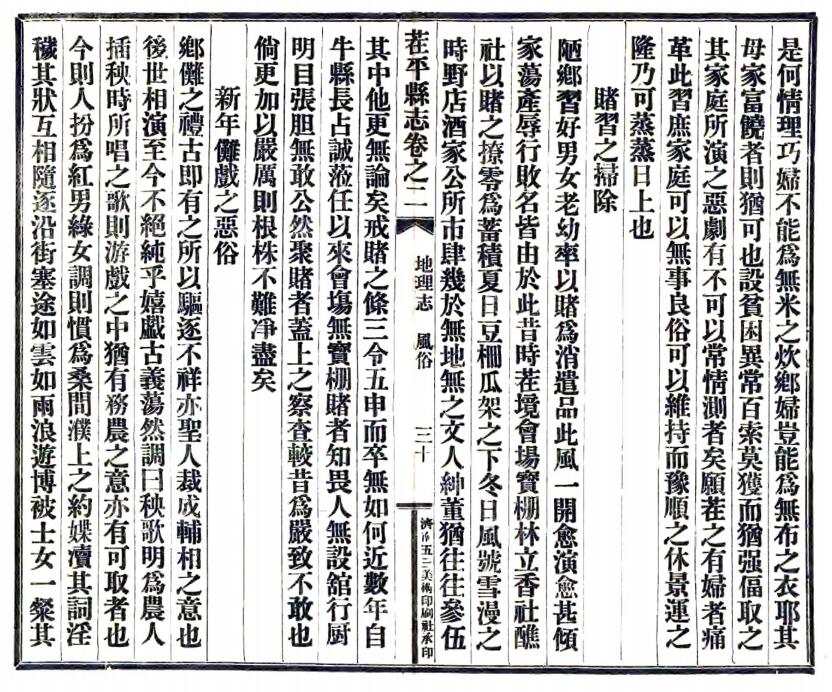 是何情理巧婦不能爲無米之炊鄉婦豈能爲無布之衣耶其
母家富饒者則猶可也設貧困異常百索莫獲而猶强偪取之
其家庭所演之惡劇有不可以常情測者矣願茬之有婦者痛
革此習庶家庭可以無事良俗可以維持而豫順之休景運之
隆乃可蒸蒸日上也
賭習之掃除
陋鄉習好男女老幼率以賭爲消遣品此風一開愈演愈甚傾
家蕩產辱行敗名皆由於此昔時茬境會場寳棚林立香社醮
社以賭之撩零爲蓄積夏日豆棚瓜架之下冬日風號雪漫之
時野店酒家公所市肆幾於無地無之文人紳董猶往往參伍
茬平縣志卷之二
地理志 風俗
三十
濟南五三美術印刷社承印
其中他更無論矣戒賭之條三令五申而卒無如何近數年自
牛縣長占誠蒞任以來會塲無寳棚賭者知畏人無設舘行厨
明目張胆無敢公然聚賭者蓋上之察查較昔爲嚴致不敢也
倘更加以嚴厲則根株不難凈盡矣
新年儺戲之惡俗
鄉儺之禮古即有之所以驅逐不祥亦聖人裁成輔相之意也
後世相演至今不絕純乎嬉戲古義蕩然調曰秧歌明爲農人
插秧時所唱之歌則游戲之中猶有務農之意亦有可取者也
今則人扮爲紅男綠女調則慣爲桑間濮上之約媟瀆其詞淫
穢其狀互相隨逐沿街塞途如雲如雨浪遊博被士女一粲其